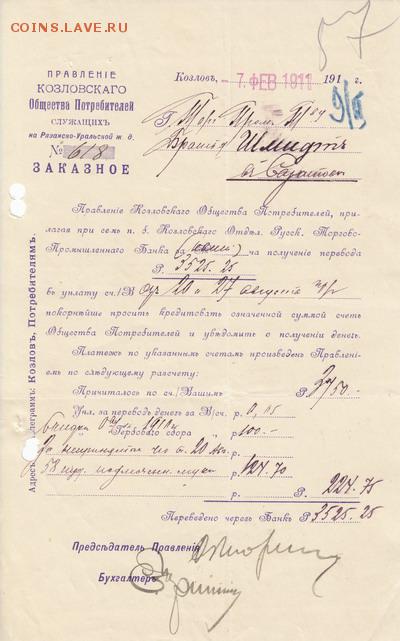 COINS.LAVE.RU
57
ПРАВЛЕНІЕ
КОЗЛОВСКАГО
Общества Потребителей
СЛУЖАЩИХЪ
на Рязанско-Уральской ж. д.
№ 618
ЗАКАЗНОЕ
Козловъ, - 7 ФЕВ 1911 191 г.
9/II
Г. Торг Пром Т ву
Братья Шмидтъ
въ Саратовѣ
Правленіе Козловскаго Общества Потребителей, при-
лагая при семъ п. б. Козловскаго Отдѣл. Русск. Торгово-
Промышленнаго Банка за на полученіе перевода
Р. 3525.25
въ уплату сч./В 20 и 27 августа
покорнѣйше просить кредитовать означенной суммой счетъ
Общества Потребителей и увѣдомить о полученіи денегъ.
Платежъ по указаннымъ счетамъ произведенъ Правлені-
емъ по слѣдующему разсчету:
Причиталось по сч./Вашимъ Р. 3750.-
Упл. за переводъ денегъ за В/сч. р. 0,05
Гербоваго сбора р. 100.-
р. 124.70
р. Р. 224.75
Переведено черезъ Банкъ Р. 3525.25
Предсѣдатель Правленія
Бухгалтеръ
Адресъ для телеграммъ: Козловъ, Потребителямъ.